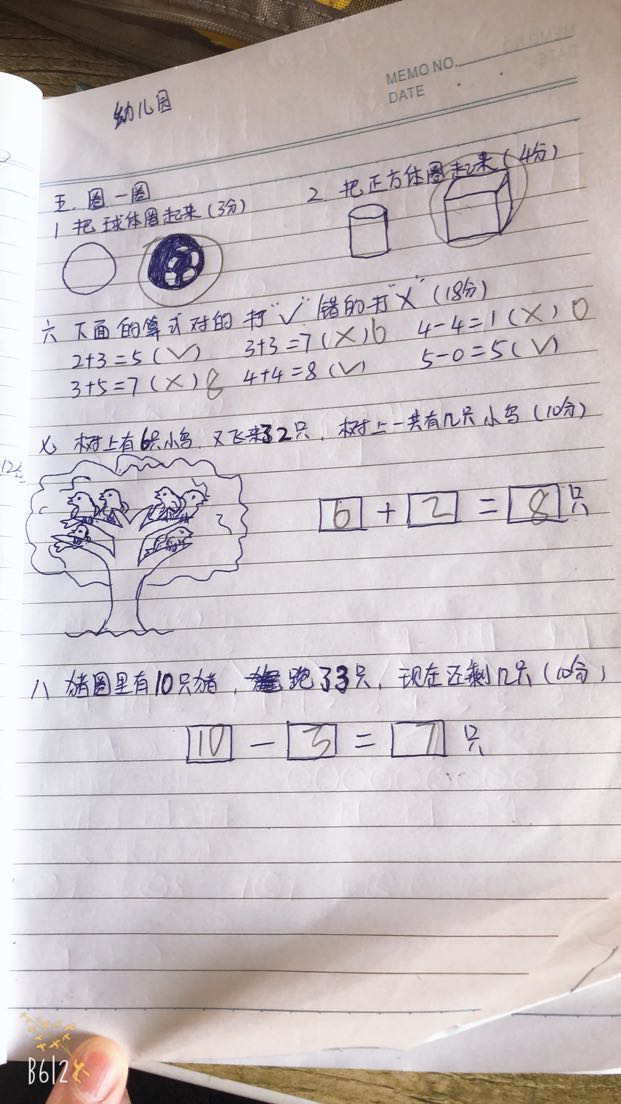 MEMO NO.
DATE
幼儿园
五.圈一圈
1 把球体圈起来(3分)
2.把正方体圈起来(4分)
六 下面的算式对的打"√"错的打"X"(18分)
2+3=5(√) 3+3=7(X)6 4-4=1(X)0
3+5=7(X)8 4+4=8(√) 5-0=5(√)
七 树上有6只小鸟,又飞来了2只,树上一共有几只小鸟(10分)
6+2=8只
八 猪圈里有10只猪,跑了3只,现在还剩几只(10分)
10-3=7只
B612